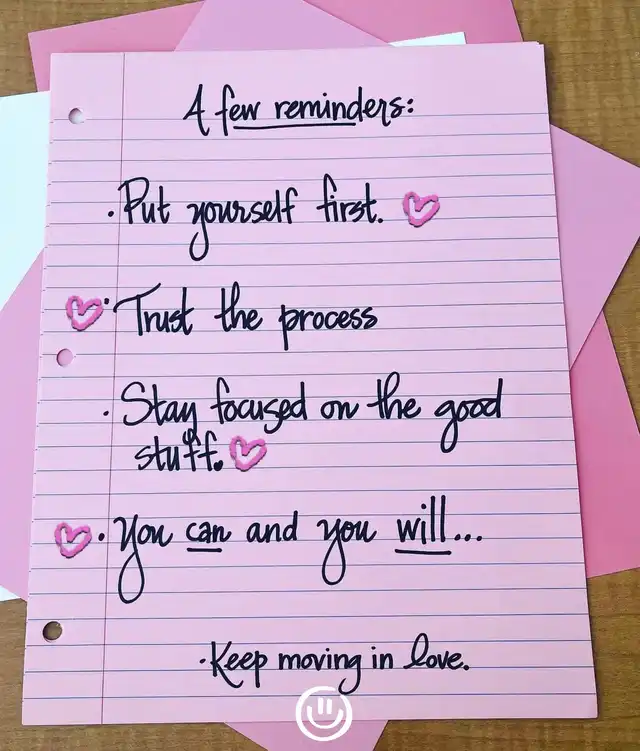 A few reminders:
· Put yourself first.
· Trust the process
· Stay focused on the good
stuff.
· You can and you will...
· Keep moving in love.